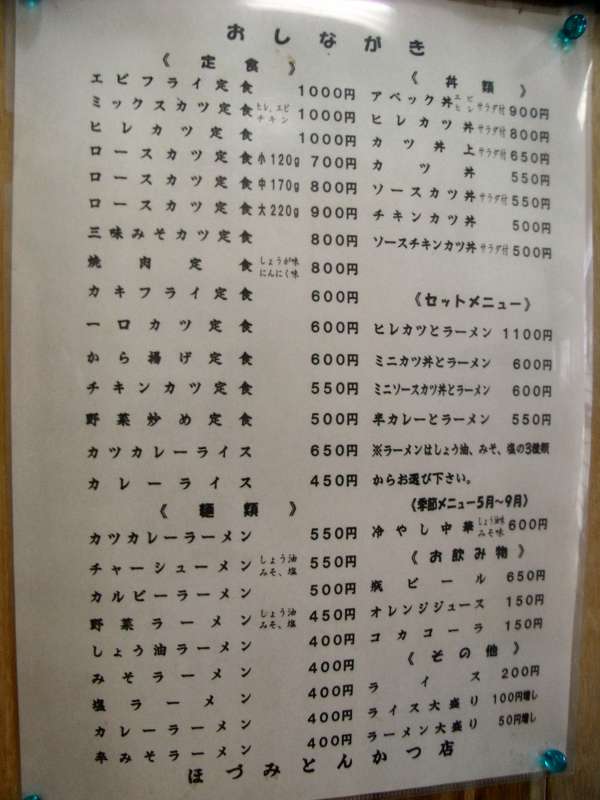 おしながき
《定食》
エビフライ定食 1000円
ミックスカツ定食 ヒレ、エビ チキン 1000円
ヒレカツ定食 1000円
ロースカツ定食 小120g 700円
ロースカツ定食 中170g 800円
ロースカツ定食 大220g 900円
三味みそカツ定食 800円
焼肉定食 しょうが味 にんにく味 800円
カキフライ定食 600円
一口カツ定食 600円
から揚げ定食 600円
チキンカツ定食 550円
野菜炒め定食 500円
カツカレーライス 650円
カレーライス 450円
《麺類》
カツカレーラーメン 550円
チャーシューメン しょう油 みそ、塩 550円
カルビーラーメン 500円
野菜ラーメン しょう油 みそ、塩 450円
しょう油ラーメン 400円
みそラーメン 400円
塩ラーメン 400円
カレーラーメン 400円
辛みそラーメン 400円
《丼類》
アベック丼 エビ ヒレ サラダ付 900円
ヒレカツ丼 サラダ付 800円
カツ丼上 サラダ付 650円
カツ丼 550円
ソースカツ丼 サラダ付 550円
チキンカツ丼 500円
ソースチキンカツ丼 サラダ付 500円
《セットメニュー》
ヒレカツとラーメン 1100円
ミニカツ丼とラーメン 600円
ミニソースカツ丼とラーメン 600円
半カレーとラーメン 550円
※ラーメンはしょう油、みそ、塩の3種類
からお選び下さい。
(季節メニュー5月〜9月)
冷やし中華 しょう油味 みそ味 600円
《お飲み物》
瓶ビール 650円
オレンジジュース 150円
コカコーラ 150円
《その他》
ライス 200円
ライス大盛り 100円増し
ラーメン大盛り 50円増し
ほづみとんかつ店